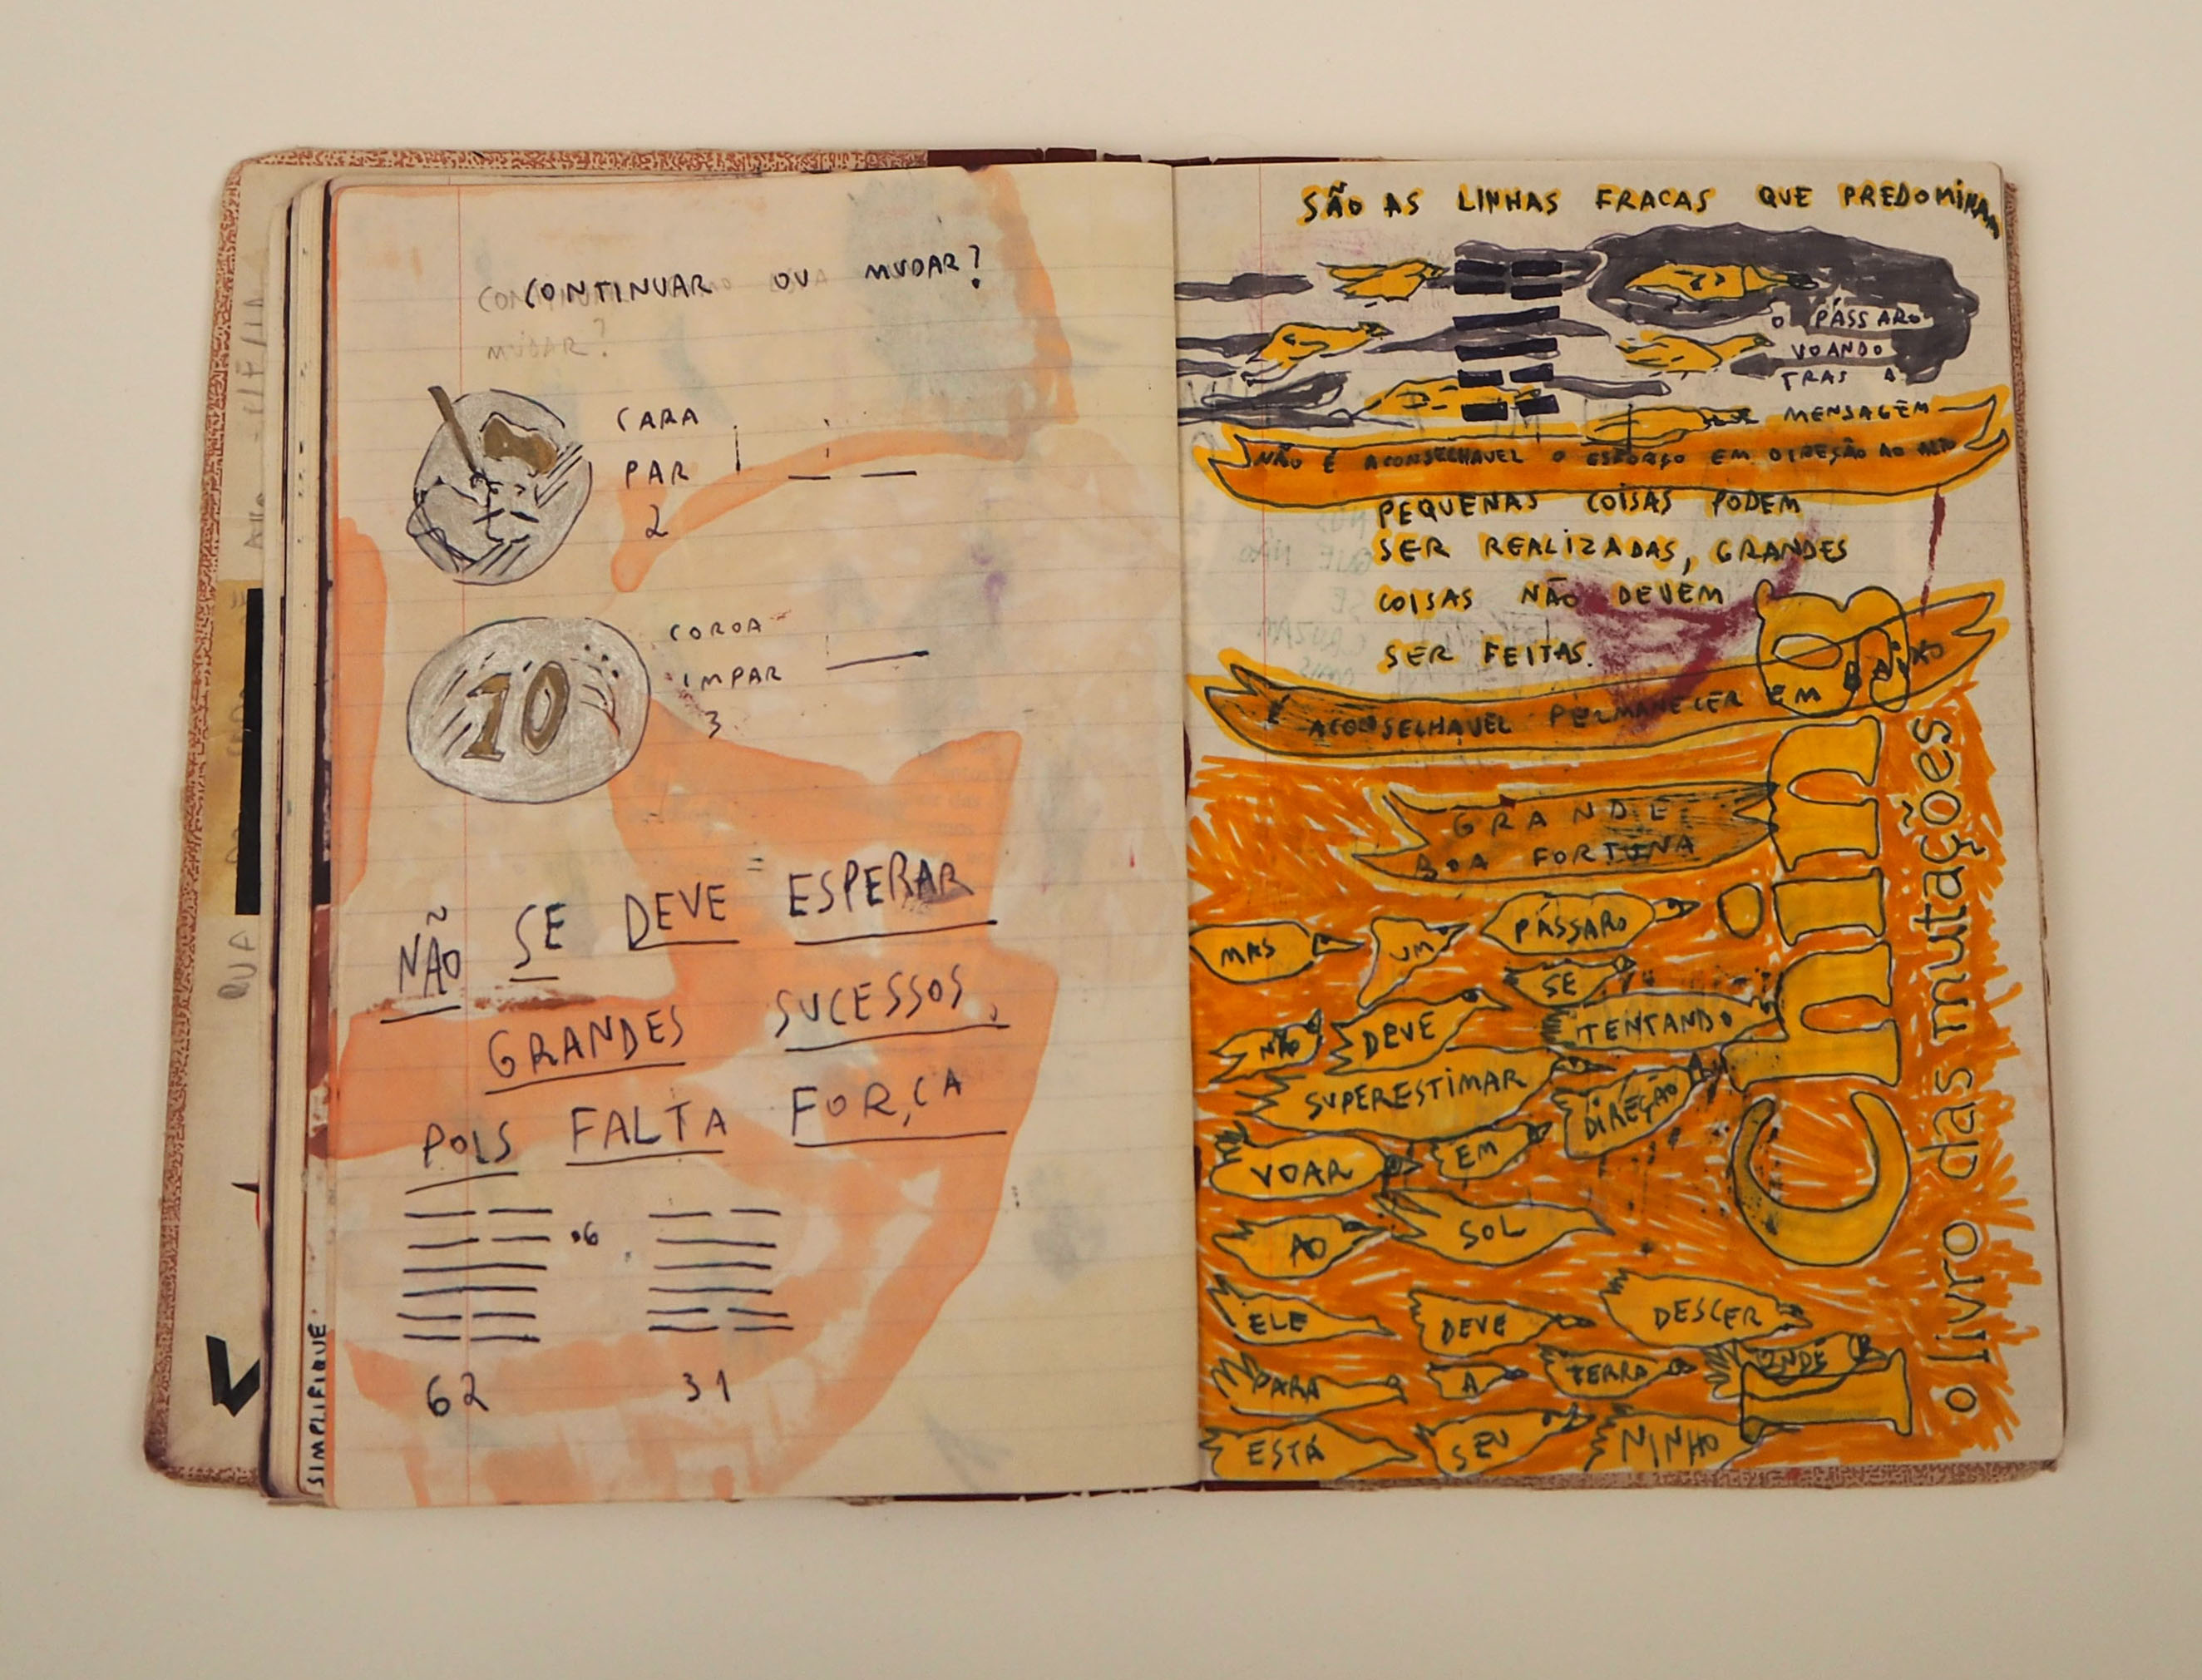 CONTINUAR OU MUDAR?
MUDAR?
CARA
PAR
2
10
COROA
IMPAR
3
NÃO SE DEVE ESPERAR
GRANDES SUCESSOS,
POIS FALTA FORÇA
.6
62 31
SIMPLIFIQUE.
SÃO AS LINHAS FRACAS QUE PREDOMINAM
O PÁSSARO
VOANDO
TRAS A
MENSAGEM
NÃO É ACONSELHAVEL O ESFORÇO EM DIREÇÃO AO ALTO
PEQUENAS COISAS PODEM
SER REALIZADAS, GRANDES
COISAS NÃO DEVEM
SER FEITAS.
É ACONSELHAVEL PERMANECER EM BAIXO
GRANDE
BOA FORTUNA
MAS UM PÁSSARO
NÃO DEVE SE
SUPERESTIMAR TENTANDO
VOAR EM DIREÇÃO
AO SOL
ELE DEVE DESCER
PARA A TERRA ONDE
ESTÁ SEU NINHO
I Ching
o livro das mutações